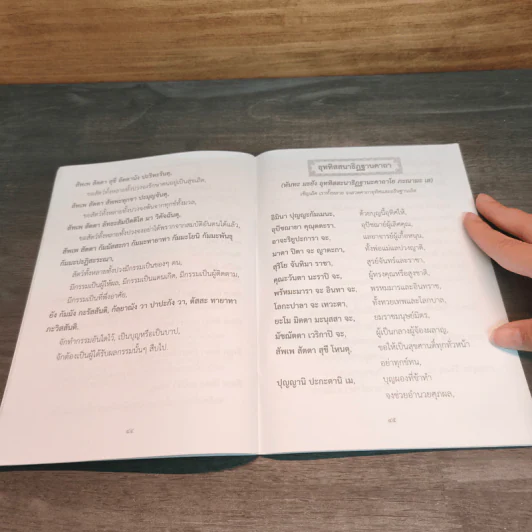 สัพเพ สัตตา สุขี อัตตานัง ปะริหะรันตุ,
ขอสัตว์ทั้งหลายทั้งปวงจงรักษาตนอยู่เป็นสุขเถิด,
สัพเพ สัตตา สัพพะทุกขา ปะมุญจันตุ,
ขอสัตว์ทั้งหลายทั้งปวงจงพ้นจากทุกข์ทั้งมวล,
สัพเพ สัตตา ลัทธะสัมปัตติโต มา วิคัจฉันตุ,
ขอสัตว์ทั้งหลายทั้งปวงจงอย่าได้พรากจากสมบัติอันตนได้แล้ว,
สัพเพ สัตตา กัมมัสสะกา กัมมะทายาทา กัมมะโยนิ กัมมะพันธุ
กัมมะปะฏิสะระณา,
สัตว์ทั้งหลายทั้งปวงมีกรรมเป็นของๆ ตน,
มีกรรมเป็นผู้ให้ผล, มีกรรมเป็นแดนเกิด, มีกรรมเป็นผู้ติดตาม,
มีกรรมเป็นที่พึ่งอาศัย,
ยัง กัมมัง กะริสสันติ, กัลยาณัง วา ปาปะกัง วา, ตัสสะ ทายาทา
ภะวิสสันติ.
จักทำกรรมอันใดไว้, เป็นบุญหรือเป็นบาป,
จักต้องเป็นผู้ได้รับผลกรรมนั้นๆ สืบไป.
๘๔
อุททิสสนาธิฏฐานคาถา
(หันทะ มะยัง อุททิสสะนาธิฏฐานะคาถาโย ภะณามะ เส)
อิมินา ปุญญะกัมเมนะ, ด้วยบุญนี้อุทิศให้,
อุปัชฌายา คุณุตตะรา, อุปัชฌาย์ผู้เลิศคุณ,
อาจะริยูปะการา จะ, แลอาจารย์ผู้เกื้อหนุน,
มาตา ปิตา จะ ญาตะกา, ทั้งพ่อแม่แลปวงญาติ,
สุริโย จันทิมา ราชา, สูรย์จันทร์และราชา,
คุณะวันตา นะราปิ จะ, ผู้ทรงคุณหรือสูงชาติ,
พรัหมะมารา จะ อินทา จะ, พรหมมารและอินทราช,
โลกะปาลา จะ เทวะตา, ทั้งทวยเทพและโลกบาล,
ยะโม มิตตา มะนุสสา จะ, ยมราชมนุษย์มิตร,
มัชฌัตตา เวริกาปิ จะ, ผู้เป็นกลางผู้จ้องผลาญ,
สัพเพ สัตตา สุขี โหนตุ, ขอให้เป็นสุขศานติ์ทุกทั่วหน้า
อย่าทุกข์ทน,
ปุญญานิ ปะกะตานิ เม, บุญผองที่ข้าทำ
จงช่วยอำนวยศุภผล,
๘๕